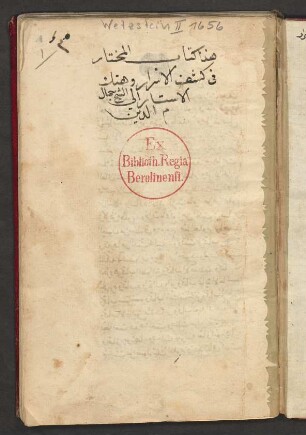 Wetzstein II 1656
هذا كتاب المختار
فى كشف الاسرار وهتك
الاستار الى الشيخ جمال
الدين
Ex
Biblioth. Regia
Berolinensi.